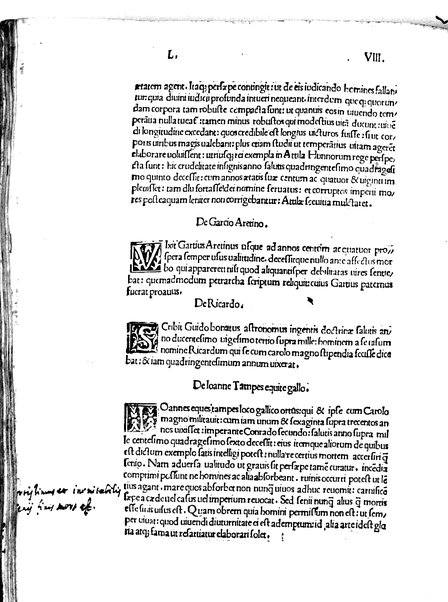 L. VIII.
ætatem agent. Itaq; persæpe contingit: ut de eis iudicando homines fallan
tur: quia diuini iudicii profunda intueri nequeant. interdum quoq; quorun
dam corpora tam robuste compacta sunt: ut quanuis eosin uiuendo tem
perātia nulla iuuet: tamen minus robustos qui modestius uitā ducunt: uiuēdi
di longitudine excedant: quos credibile est longius uicturos fuisse: si ut cor
poris uiribus magis ualebant: plus etiam studii ut temperatius uitam agerēt
elaborare uoluissent: utriusq; rei exempla in Attila Hunnorum rege perspe
cta sunt: hic crudelitate insignis anno salutis quadringentesimo quadragesi
mo quinto decessit: cum annos ætatis suæ centum ac quatuor & uiginti im
pleuisset: tam diu fortasse dei nomine seruatus: ut corruptos imperii mo
res posteaquam leniter non corrigebantur: Attilæ sæuitia mulctaret.
De Gartio Aretino.
VIxit Gartius Aretinus usque ad annos centum ac quatuor pro
spera semper usus ualitudine. decessitque nullo ante affectus mor
bo qui appareret nisi quod aliquantisper debilitatas uires sentie
bat: quemadmodum petrarcha scriptum reliquit: cuius Gartius paternus
fuerat proauus.
De Ricardo.
SCribit Guido bonatus astronomus ingentis doctrinæ salutis an
no ducentesimo uigesimo tertio supra mille: hominem a se uisum
nomine Ricardum qui se cum carolo magno stipendia fecisse dice
bat: & iam quadringentesimum annum uixerat.
De Ioanne Tampes equite gallo.
IOannes eques: tampes loco gallico ortus: qui & ipse cum Carolo
magno militauit: cum iam unum & sexaginta supra trecentos an
nos uixisset: imperante Conrado secundo: salutis anno supra mil
le centesimo quadragesimo sexto decessit: eius itemque aliorum de quibus
est dictum exemplo satis intelligi potest: nulla re certius mortem accersiri q̄
senio. Nam aduersa ualitudo ut grauis sit persæpe tamē curatur. incēdia
comprimi possunt ne homines ac alia absorbeant. ruinis occurri potest ut lē
tius agant. mare quos absorbet non nunq̄ uiuos adhuc reuomit: carnificē
sæpe a cæde uel casus uel imperium reuocat. Sed senii nunq̄ alius q̄ mortis
esse finis uisus est. Quam obrem quia homini permissum non est: ut sem
per uiuat: quod uiuendi diuturnitate ei est ademptum: id alia arte id est glo
ria atq; fama ut resartiatur elaborari solet.
finis mors est.